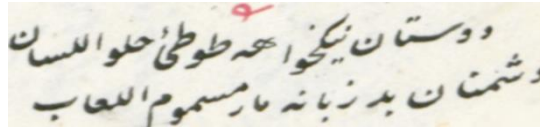 دوستان نیکخواهه طوطئ حلو اللسان
دشمنان بد زبانه مار مسموم اللعاب